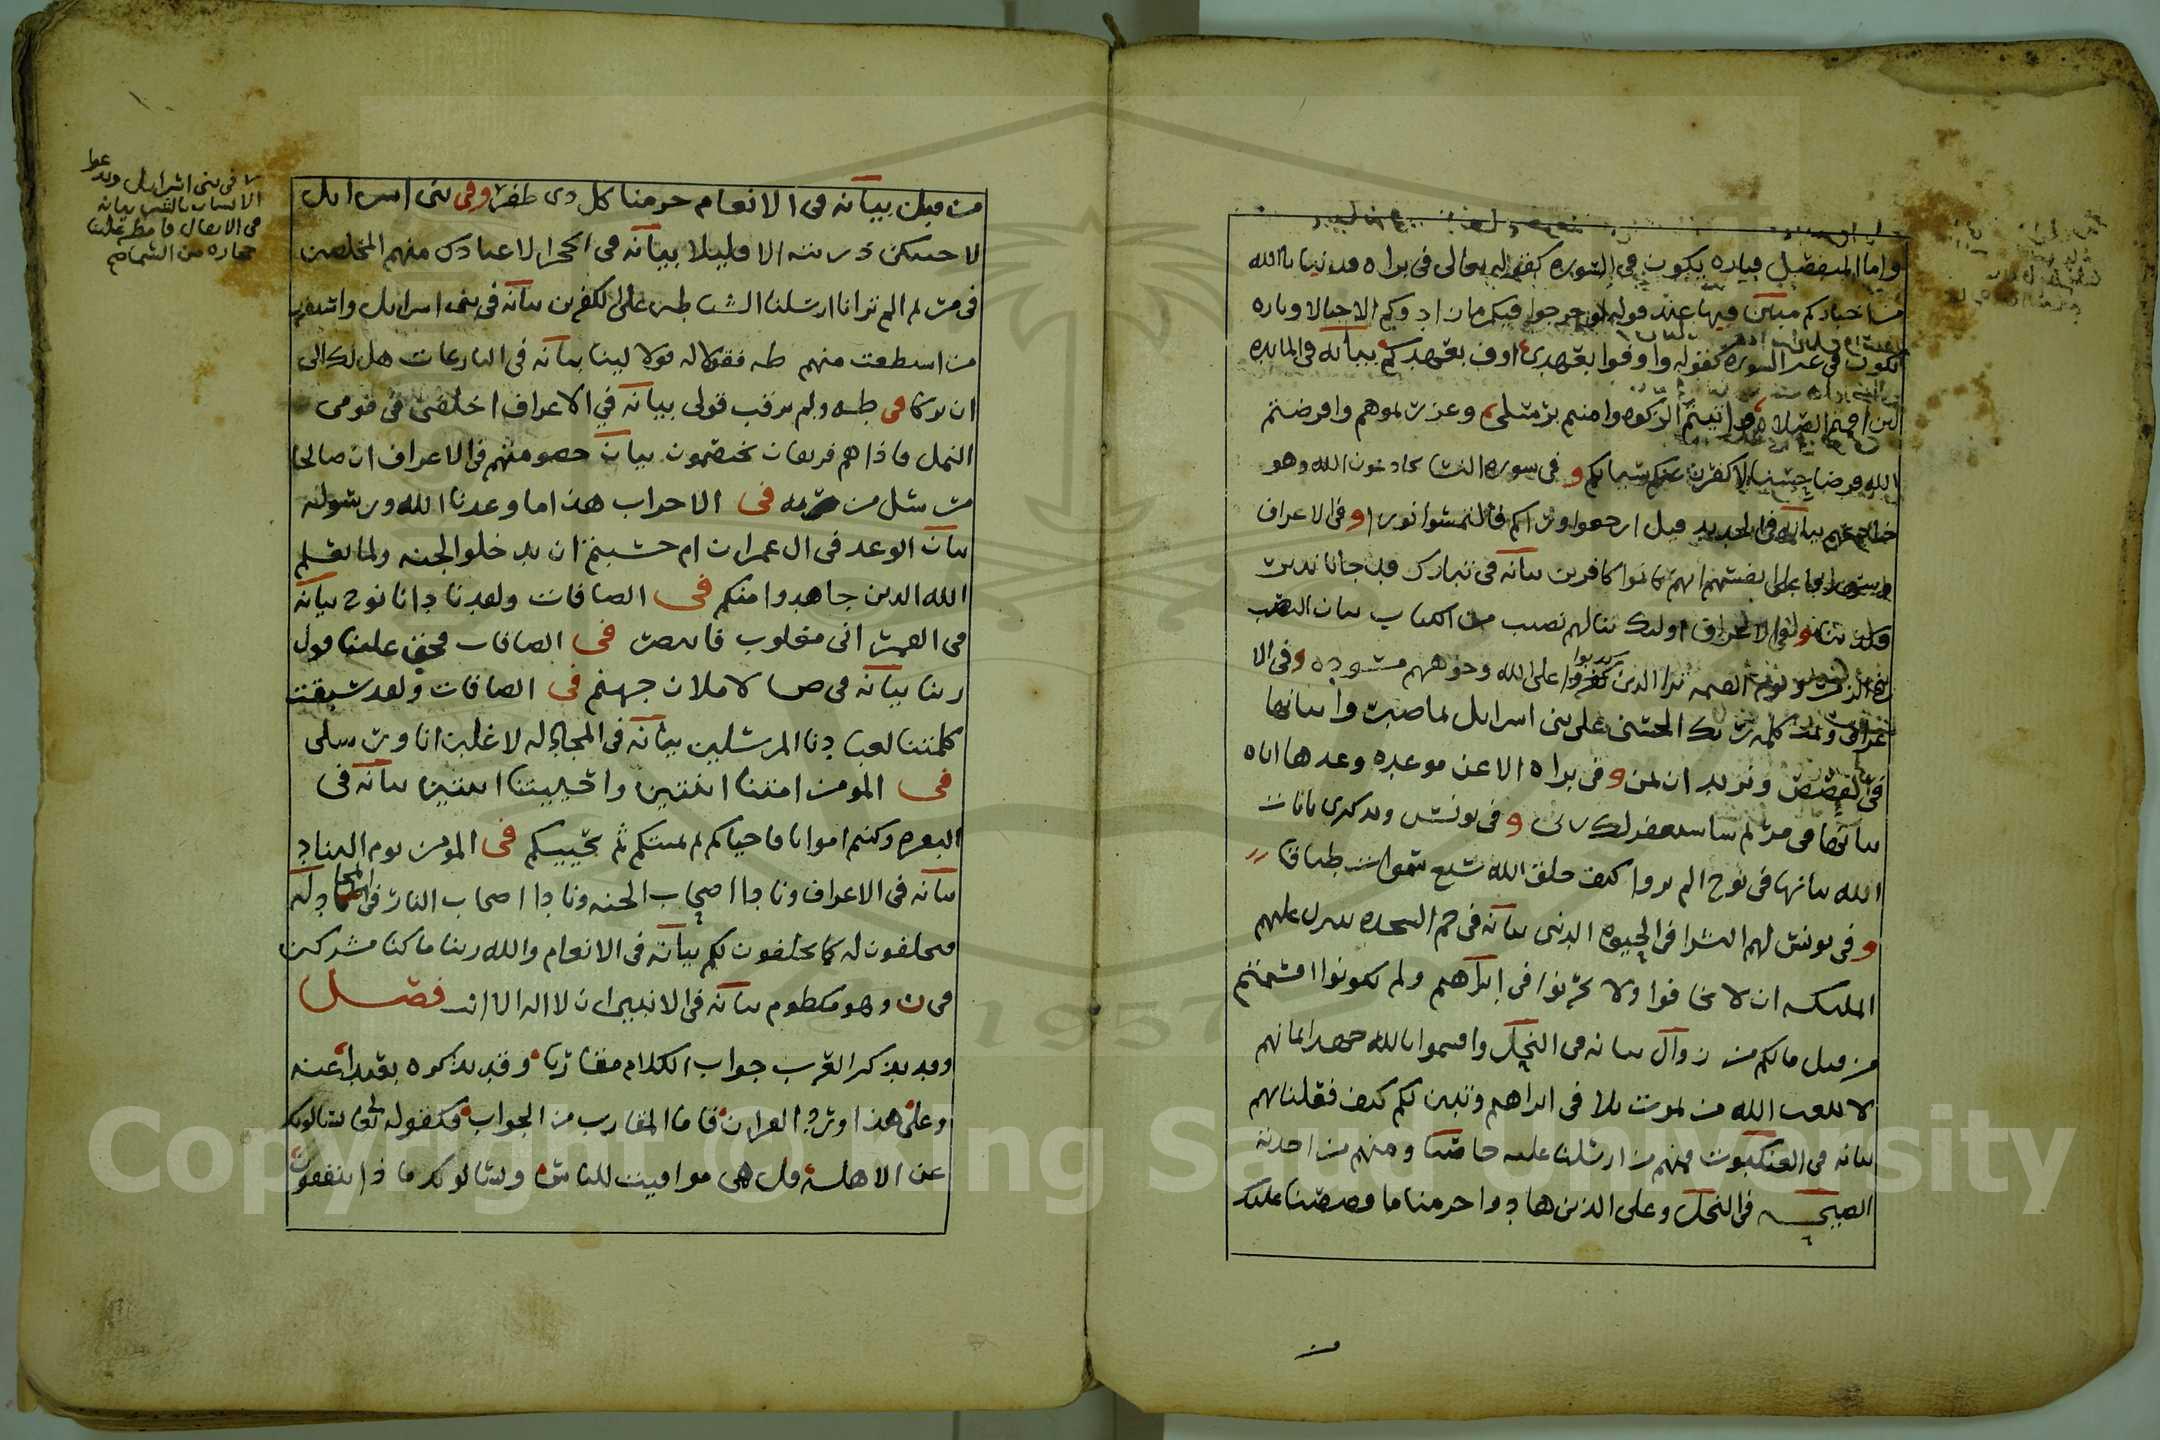 واما المنفصل فتاره يكون في السوره كقوله تعالى في براه قد نبانا الله
من اخباركم مبين فيها عند قوله لو خرجوا فيكم ما زادوكم الا خبالا وتاره
تكون في غير السوره كقوله واوفوا بعهدى اوف بعهدكم بيانه في المايده
لين اقمتم الصلاه واتيتم الزكوه وامنتم برسلى وعزرتموهم واقرضتم
الله قرضا حسنا لاكفرن عنكم سياتكم وفي سوره النسا يخادعون الله وهو
خادعهم بيانه في الحديد قيل ارجعوا وراكم فالتمسوا نورا وفي الاعراف
وشهدوا على انفسهم انهم كانوا كافرين بيانه في تبارك قد جانا نذير
فكذبنا وفي الاعراف اوليك ينالهم نصيب من الكتاب بيان النصيب
في الزمر ويوم القيمه ترا الذين كذبوا على الله وجوههم مسوده وفي الا
عراف وتمت كلمه ربك الحسنى على بنى اسرايل بما صبروا بيانها
في القصص ونريد ان نمن وفي براه الا عن موعده وعدها اياه
بيانها في مريم ساستغفر لك ربى وفي يونس وتذكرى بايات
الله بيانها في نوح الم تروا كيف خلق الله سبع سموات طباقا
وفي يونس لهم البشرا في الحيوه الدنيى بيانه في حم السجده تتنزل عليهم
المليكه ان لا تخافوا ولا تحزنوا في ابراهيم ولم تكونوا اقسمتم
من قبل مالكم من زوال بيانه في النحل واقسموا بالله جهد ايمانهم
لا يبعث الله من يموت بلا في ابراهيم وتبين لكم كيف فعلنا بهم
بيانه في العنكبوت فمنهم من ارسلنا عليه حاصبا ومنهم من اخذته
الصيحه في النحل وعلى الذين هادوا حرمنا ما قصصنا عليك
من
من قبل بيانه في الانعام حرمنا كل ذى ظفر وفي بنى اسرايل
لاحتنكن ذريته الا قليلا بيانه في الحجر الا عبادك منهم المخلصين
في مريم الم تر انا ارسلنا الشياطين على الكفرين بيانه في بنى اسرايل واستفزز
من استطعت منهم طه فقولا له قولا لينا بيانه في النازعات هل لك الى
ان تزكا في طه ولم ترقب قولى بيانه في الاعراف اخلفنى في قومى
النمل فاذا هم فريقان يختصمون بيان خصومتهم في الاعراف ان صالحا
مرسل من ربه في الاحزاب هذا ما وعدنا الله ورسوله
بيان الوعد في ال عمران ام حسبتم ان تدخلوا الجنه ولما يعلم
الله الذين جاهدوا منكم في الصافات ولقد نادانا نوح بيانه
في القمر انى مغلوب فانتصر في الصافات فحق علينا قول
ربنا بيانه في ص لاملان جهنم في الصافات ولقد سبقت
كلمتنا لعبادنا المرسلين بيانه في المجادله لاغلبن انا ورسلى
في المومن امتنا اثنتين واحييتنا اثنتين بيانه في
البقره وكنتم امواتا فاحياكم ثم يميتكم ثم يحييكم في المومن يوم التناد
بيانه في الاعراف ونادا اصحاب الجنه ونادا اصحاب النار في المجادله
فيحلفون له كما يحلفون لكم بيانه في الانعام والله ربنا ما كنا مشركين
في ن وهو مكظوم بيانه في الانبيا ان لا اله الا انت فصل
وقد يذكر العرب جواب الكلام مقاربا وقد يذكره بعيدا عنه
وعلى هذا ورد القران فاما المقارب من الجواب فكقوله تعالى يسالونك
عن الاهله قل هى مواقيت للناس ويسالونك ماذا ينفقون
في بنى اسرايل ويدعوا
الانسان بالشر بيانه
في الانفال فامطر علينا
حجاره من السما